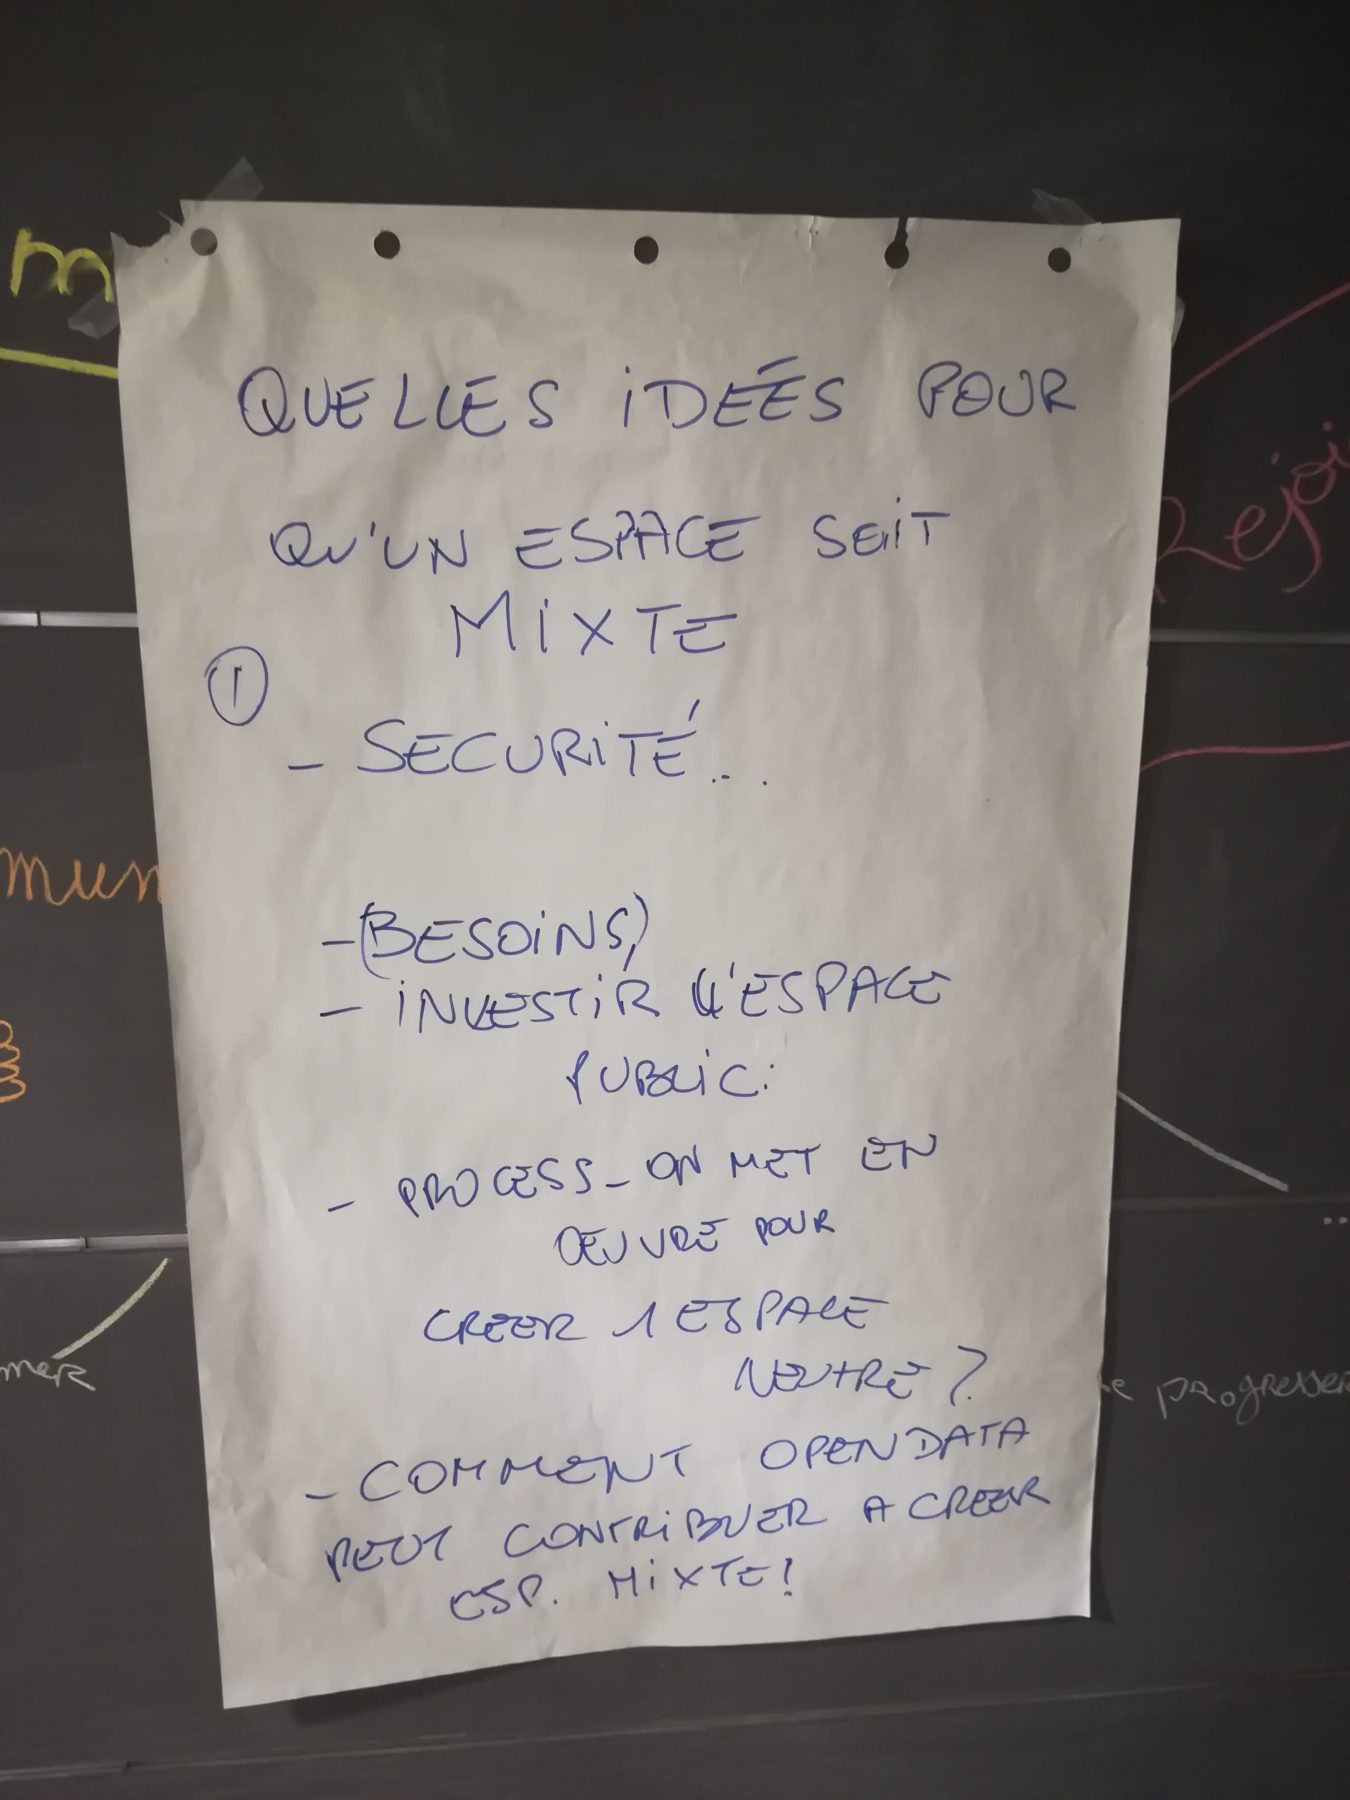 QUELLES iDEÉS POUR
QU'UN ESPACE SOiT
MiXTE
1
- SECURiTÉ...
- (BESOiNS)
- iNVESTiR L'ESPACE
PUBLiC:
- PROCESS - ON MET EN
OEUVRE POUR
CREER 1 ESPACE
NEUTRE ?
- COMMENT OPENDATA
PEUT CONTRiBUER A CREER
ESP. MiXTE !
m
Rejoi
mun
mer
progresser